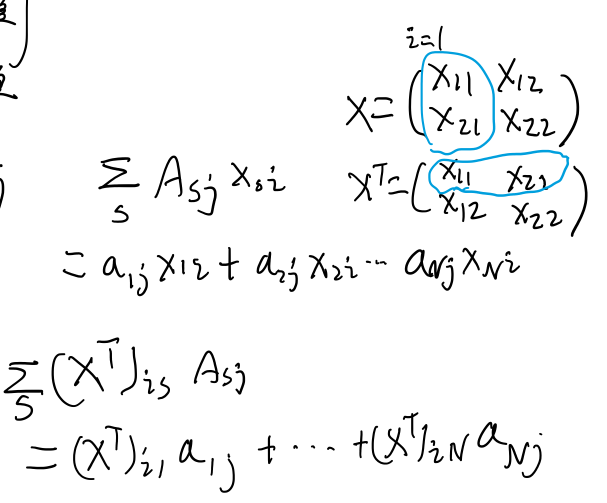 i=1
X = ( x11 x12
x21 x22 )
∑s Asj xsi
X^T = ( x11 x21
x12 x22 )
= a1j x1i + a2j x2i ... aNj xNi
∑s (X^T)is Asj
= (X^T)i1 a1j + ... + (X^T)iN aNj